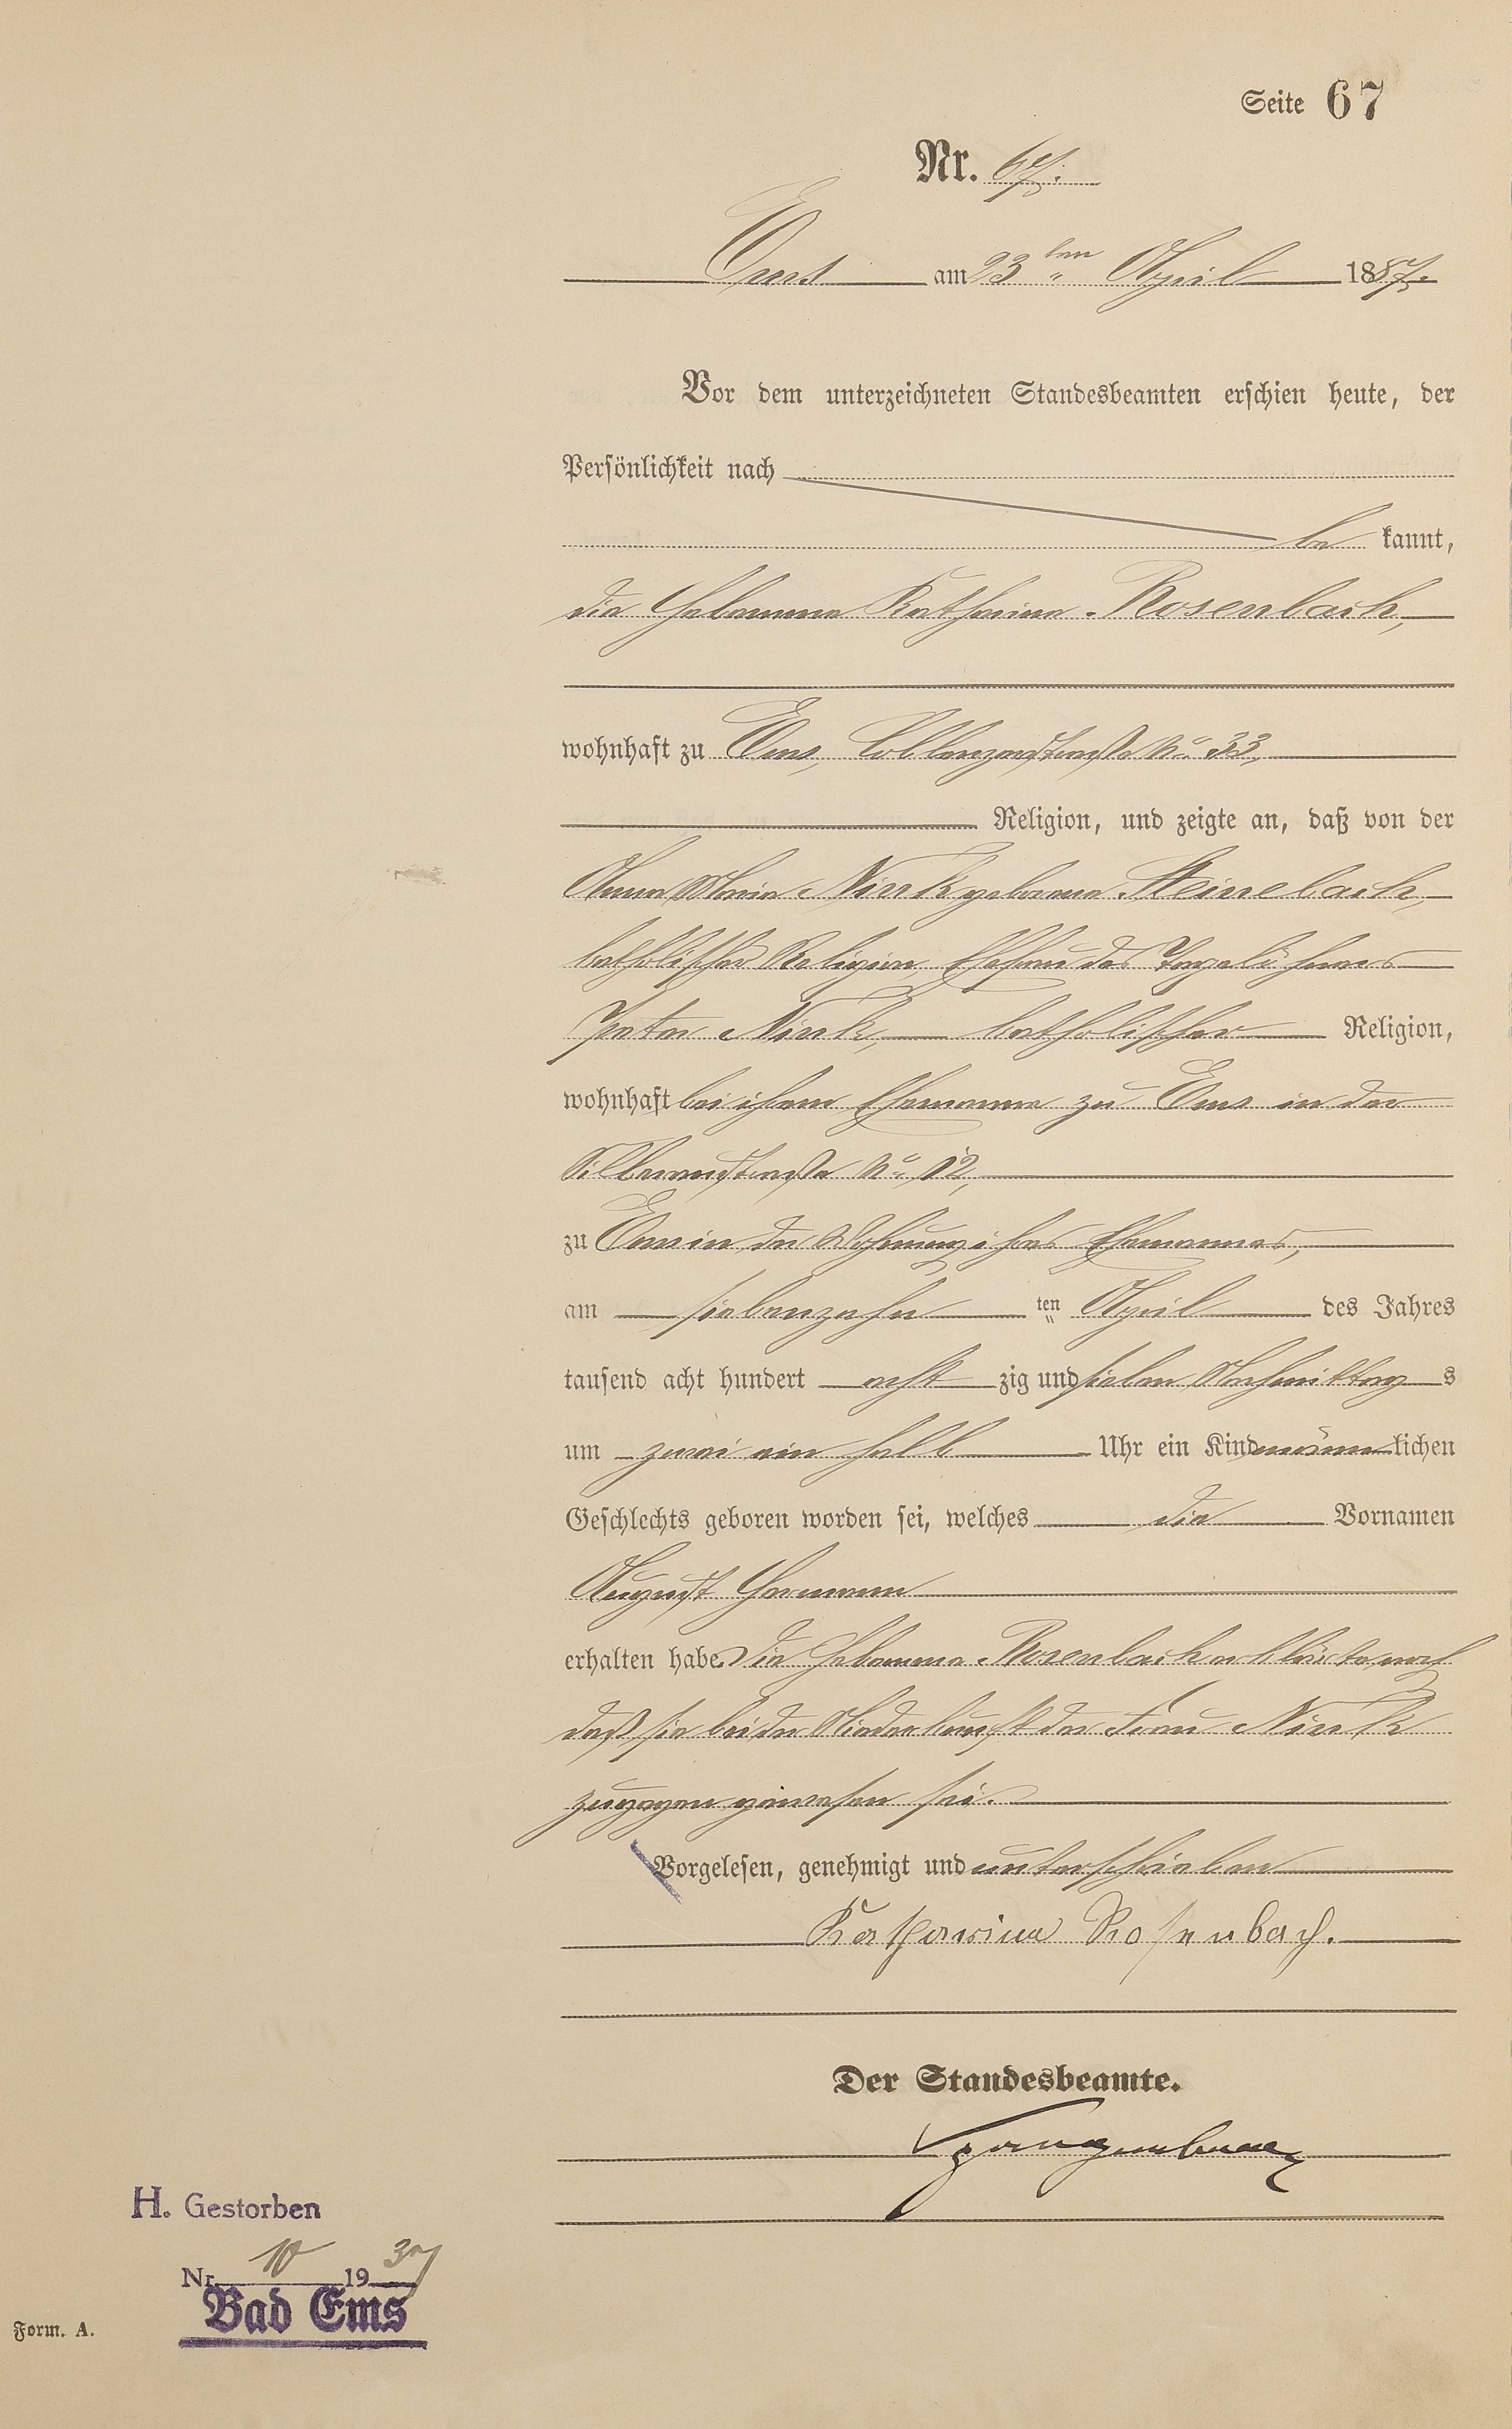 Seite 67
Nr. 67.
Ems am 23ten April 1887.
Vor dem unterzeichneten Standesbeamten erschien heute, der
Persönlichkeit nach
be kannt,
die Hebamme Katharina Rosenbach,
wohnhaft zu Ems, Coblenzerstraße No 33,
Religion, und zeigte an, daß von der
Anna Maria Nink geborene Steinebach,
katholischer Religion, Ehefrau des Tagelöhners
Peter Nink, katholischer Religion,
wohnhaft bei ihrem Ehemanne zu Ems in der
Silberaustraße No 12,
zu Ems in der Wohnung ihres Ehemannes,
am siebenzehn ten April des Jahres
tausend acht hundert acht zig und sieben Nachmittag s
um zwei ein halb Uhr ein Kind männ lichen
Geschlechts geboren worden sei, welches die Vornamen
August Hermann
erhalten habe. Die Hebamme Rosenbach erklärte noch
daß sie bei der Niederkunft der Frau Nink
zugegen gewesen sei.
Vorgelesen, genehmigt und unterschrieben
Katharina Rosenbach.
Der Standesbeamte.
H. Gestorben
Nr. 10 1937
Bad Ems
Form. A.